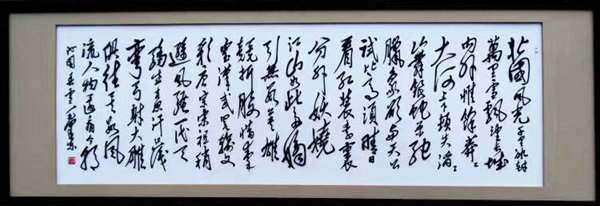 北國風光千里冰封
萬里雪飄望長城
內外惟餘莽莽
大河上下頓失滔滔
山舞銀蛇原馳
臘象欲與天公
試比高須晴日
看紅裝素裹
分外妖嬈
江山如此多嬌
引無數英雄
競折腰惜秦皇
漢武略輸文
彩唐宗宋祖稍
遜風騷一代天
驕成吉思汗只識
彎弓射大雕
俱往矣數風
流人物還看今朝
沁園春雪